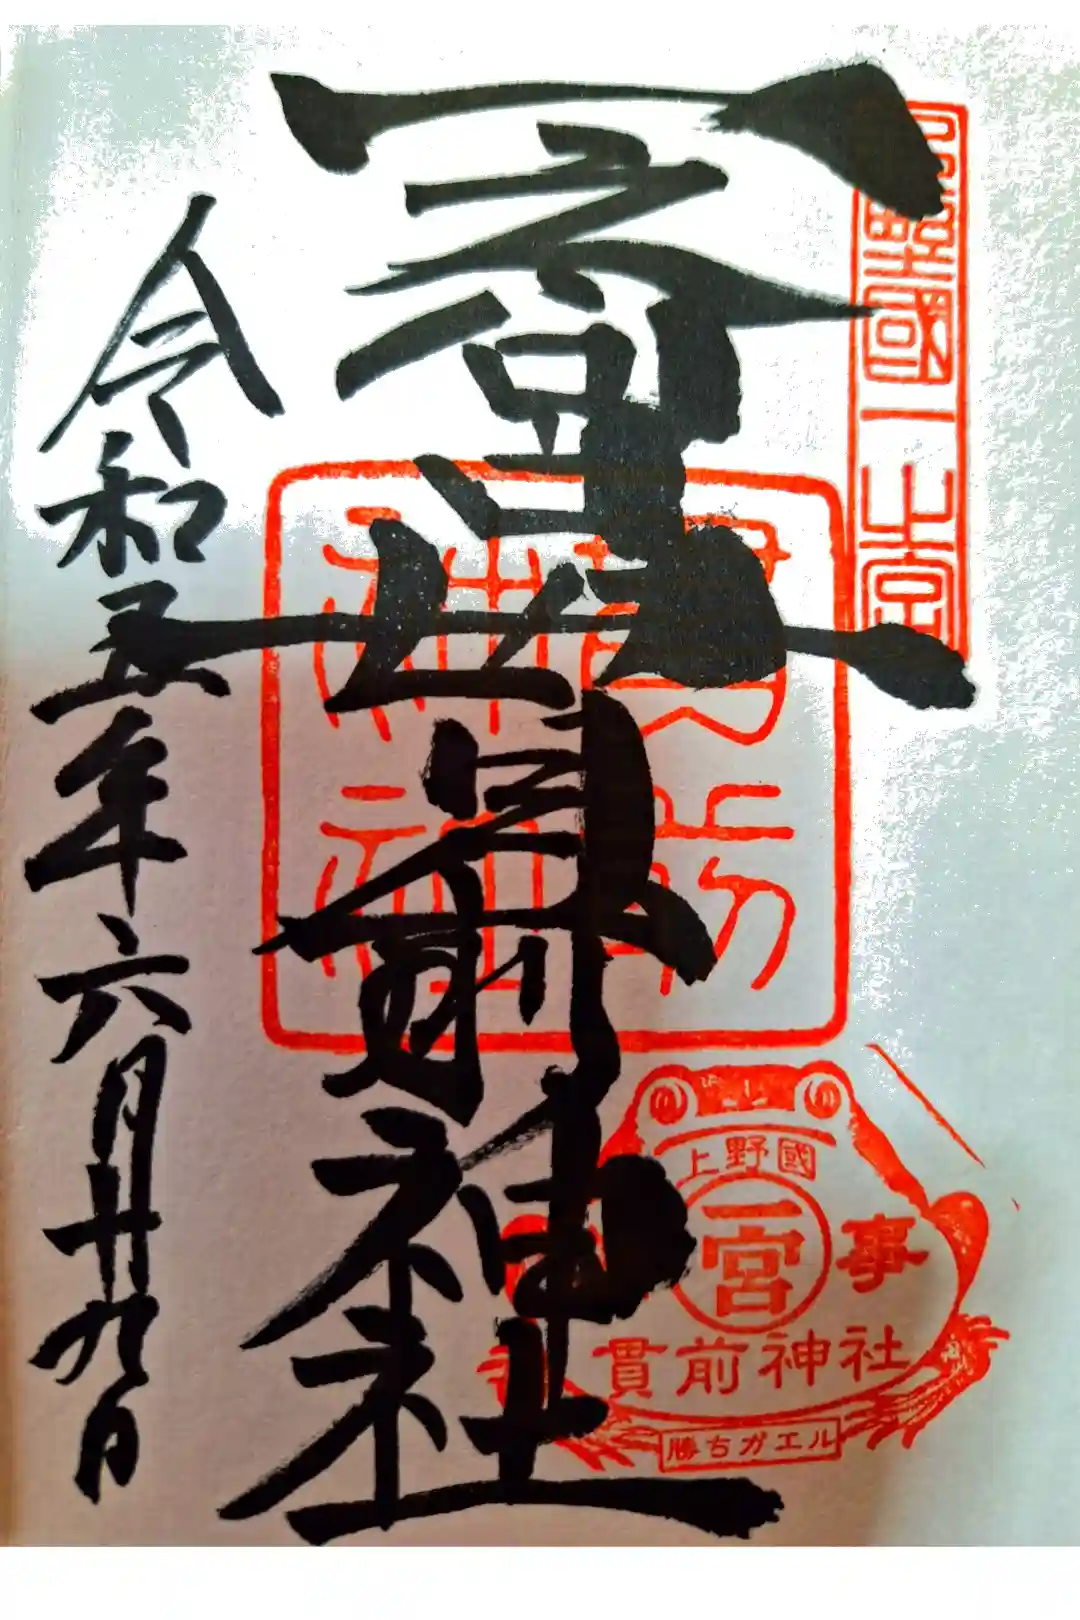 上野國一之宮
一之宮貫前神社
貫前神社
上野國
一宮
事
貫前神社
勝ちガエル
令和五年六月廿九日